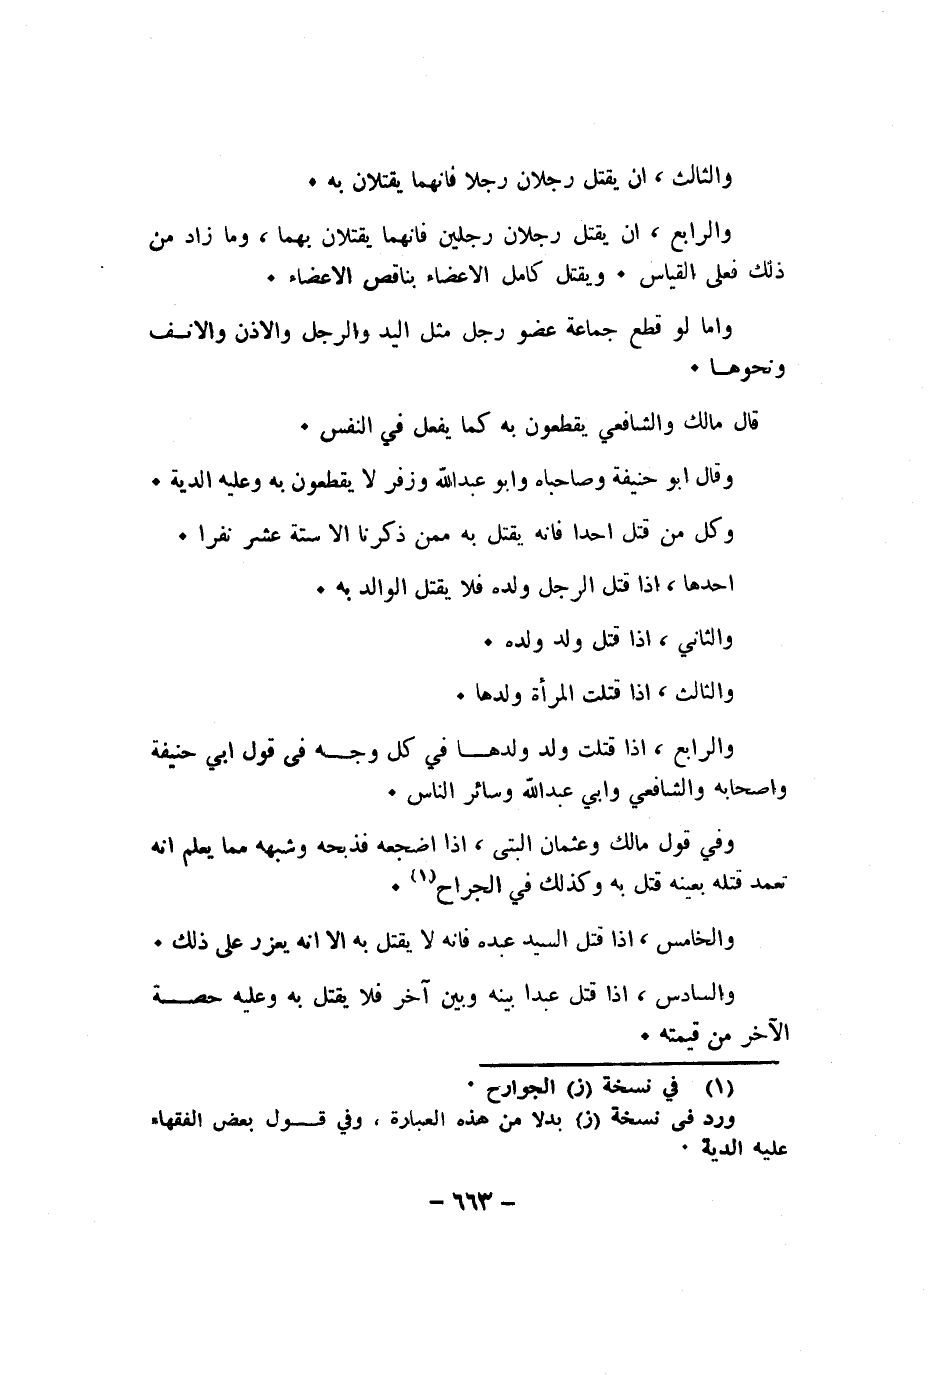 والثالث ، ان يقتل رجلان رجلا فانهما يقتلان به ٠
والرابع ، ان يقتل رجلان رجلين فانهما يقتلان بهما ، وما زاد من
ذلك فعلى القياس ٠ ويقتل كامل الاعضاء بناقص الاعضاء ٠
واما لو قطع جماعة عضو رجل مثل اليد والرجل والاذن والانـف
ونحوهـا ٠
قال مالك والشافعي يقطعون به كما يفعل في النفس ٠
وقال ابو حنيفة وصاحباه وابو عبدالله وزفر لا يقطعون به وعليه الدية ٠
وكل من قتل احدا فانه يقتل به ممن ذكرنا الا ستة عشر نفرا ٠
احدها ، اذا قتل الرجل ولده فلا يقتل الوالد به ٠
والثاني ، اذا قتل ولد ولده ٠
والثالث ، اذا قتلت المرأة ولدها ٠
والرابع ، اذا قتلت ولد ولدهــا في كل وجــه فى قول ابي حنيفة
واصحابه والشافعي وابي عبدالله وسائر الناس ٠
وفي قول مالك وعثمان البتى ، اذا اضجعه فذبحه وشبهه مما يعلم انه
تعمد قتله بعينه قتل به وكذلك في الجراح(١) ٠
والخامس ، اذا قتل السيد عبده فانه لا يقتل به الا انه يعزر على ذلك ٠
والسادس ، اذا قتل عبدا بينه وبين آخر فلا يقتل به وعليه حصــة
الآخر من قيمته ٠
(١) في نسخة (ز) الجوارح ٠
ورد فى نسخة (ز) بدلا من هذه العبارة ، وفي قــول بعض الفقهاء
عليه الدية ٠
– ٦٦٣ –